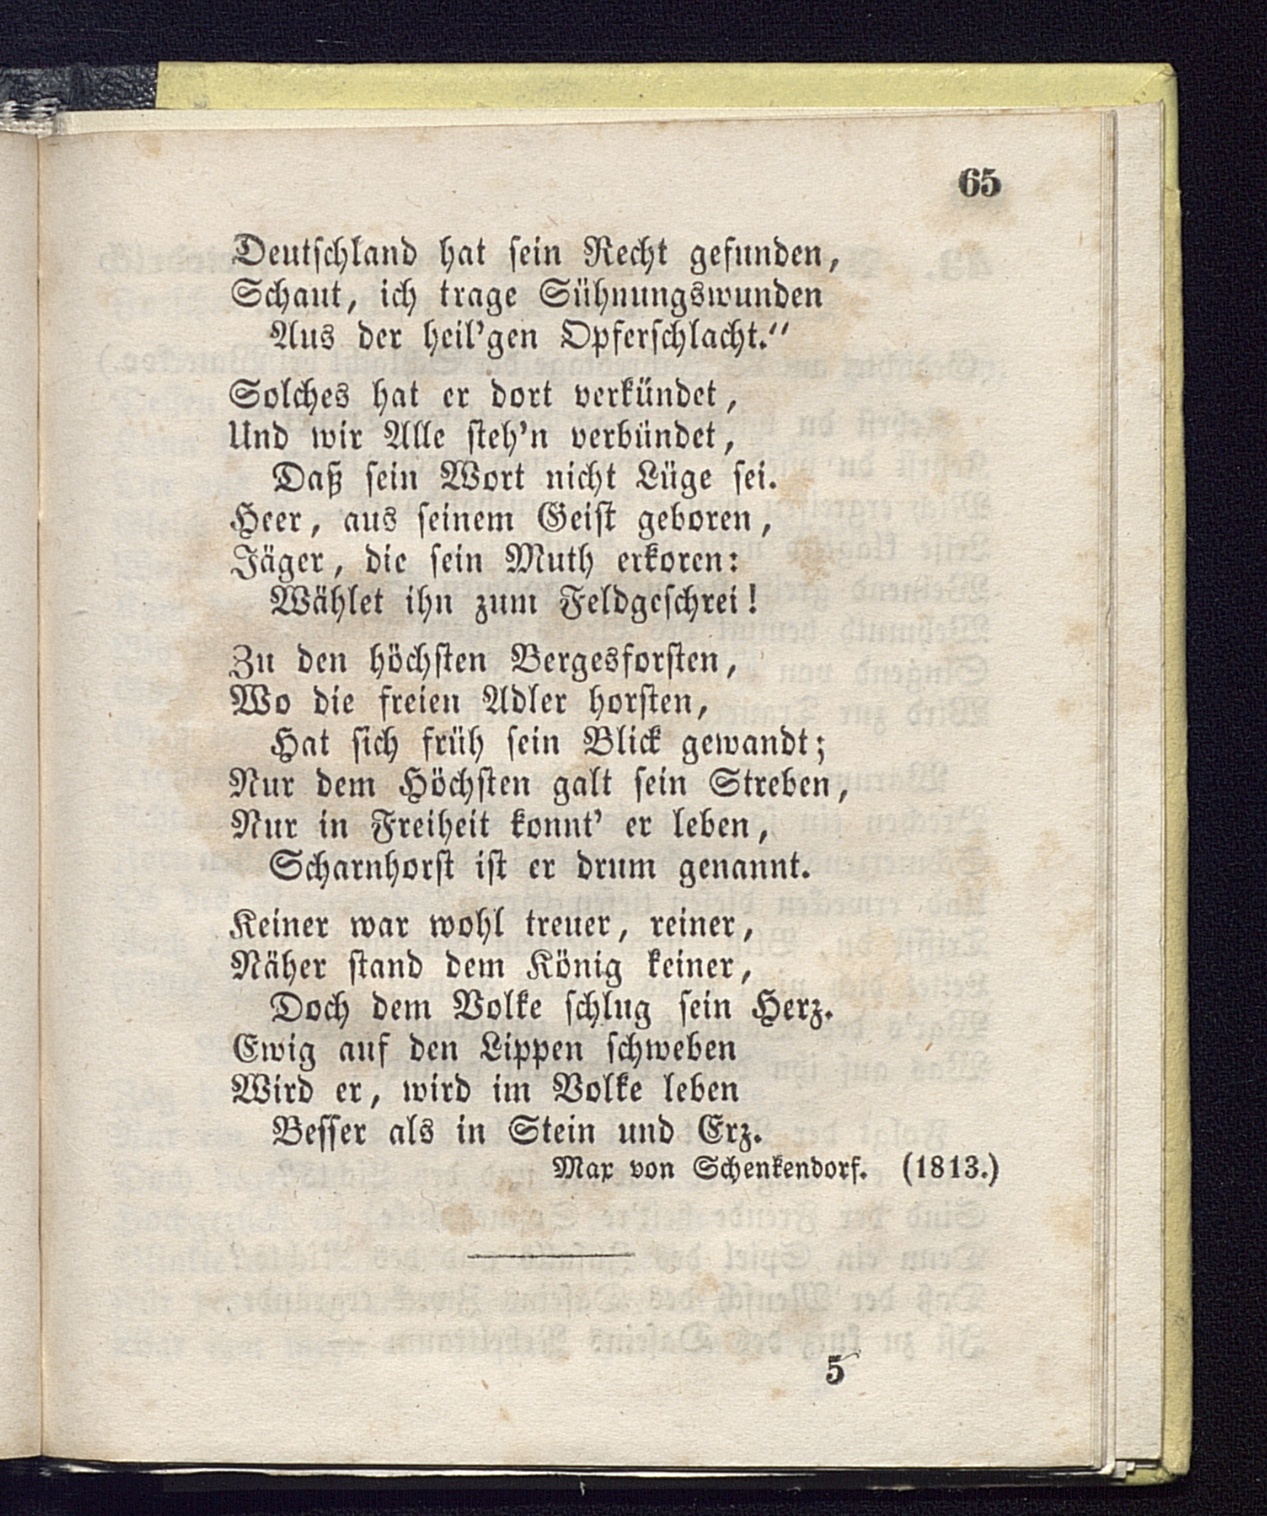 65
Deutschland hat sein Recht gefunden,
Schaut, ich trage Sühnungswunden
Aus der heil'gen Opferschlacht."
Solches hat er dort verkündet,
Und wir Alle steh'n verbündet,
Daß sein Wort nicht Lüge sei.
Heer, aus seinem Geist geboren,
Jäger, die sein Muth erkoren:
Wählet ihn zum Feldgeschrei!
Zu den höchsten Bergesforsten,
Wo die freien Adler horsten,
Hat sich früh sein Blick gewandt;
Nur dem Höchsten galt sein Streben,
Nur in Freiheit konnt' er leben,
Scharnhorst ist er drum genannt.
Keiner war wohl treuer, reiner,
Näher stand dem König keiner,
Doch dem Volke schlug sein Herz.
Ewig auf den Lippen schweben
Wird er, wird im Volke leben
Besser als in Stein und Erz.
Max von Schenkendorf. (1813.)
5